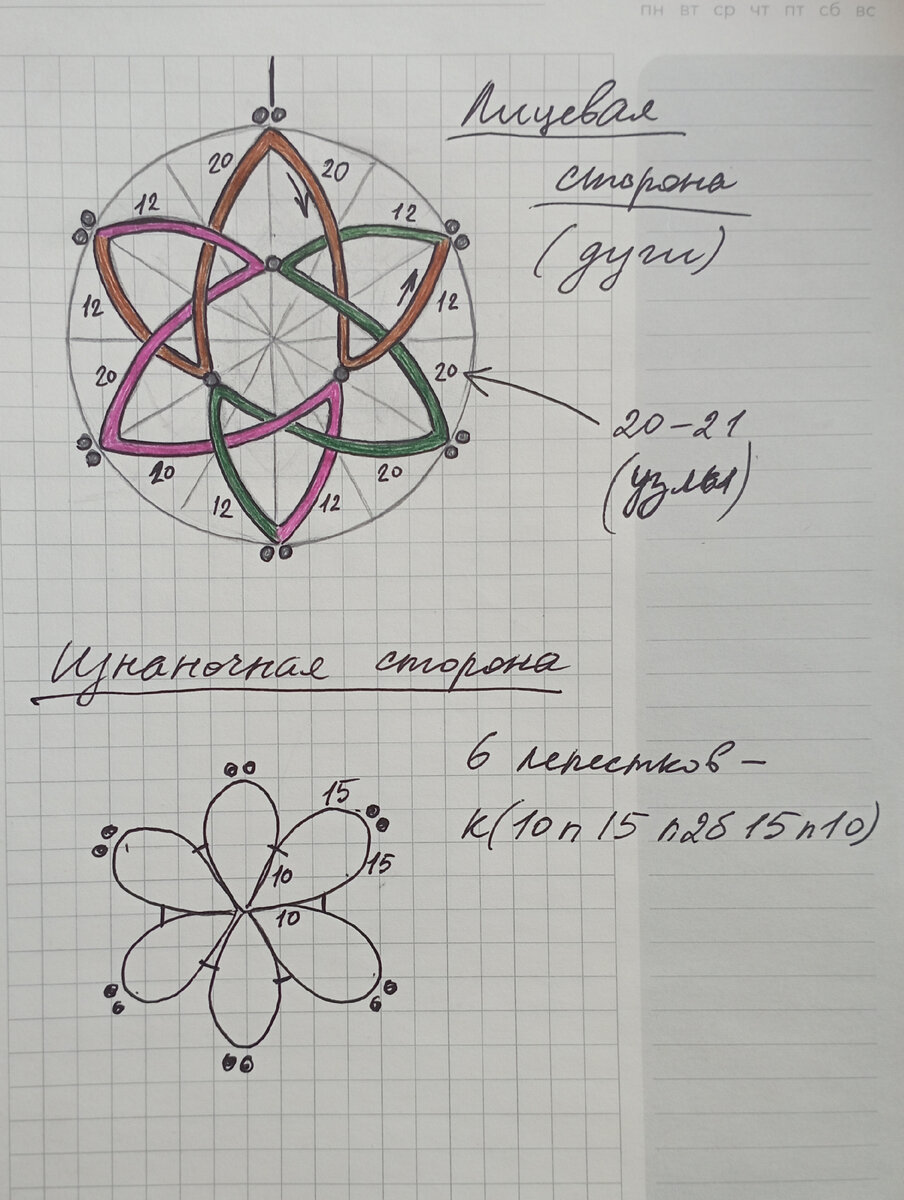 пн вт ср чт пт сб вс
Лицевая
сторона
(дуги)
20 20
12 12
12 12
20 20
20 20
12 12
20-21
(узлы)
Изнаночная сторона
6 лепестков -
к(10п15п2б15п10)
15
15
10
10